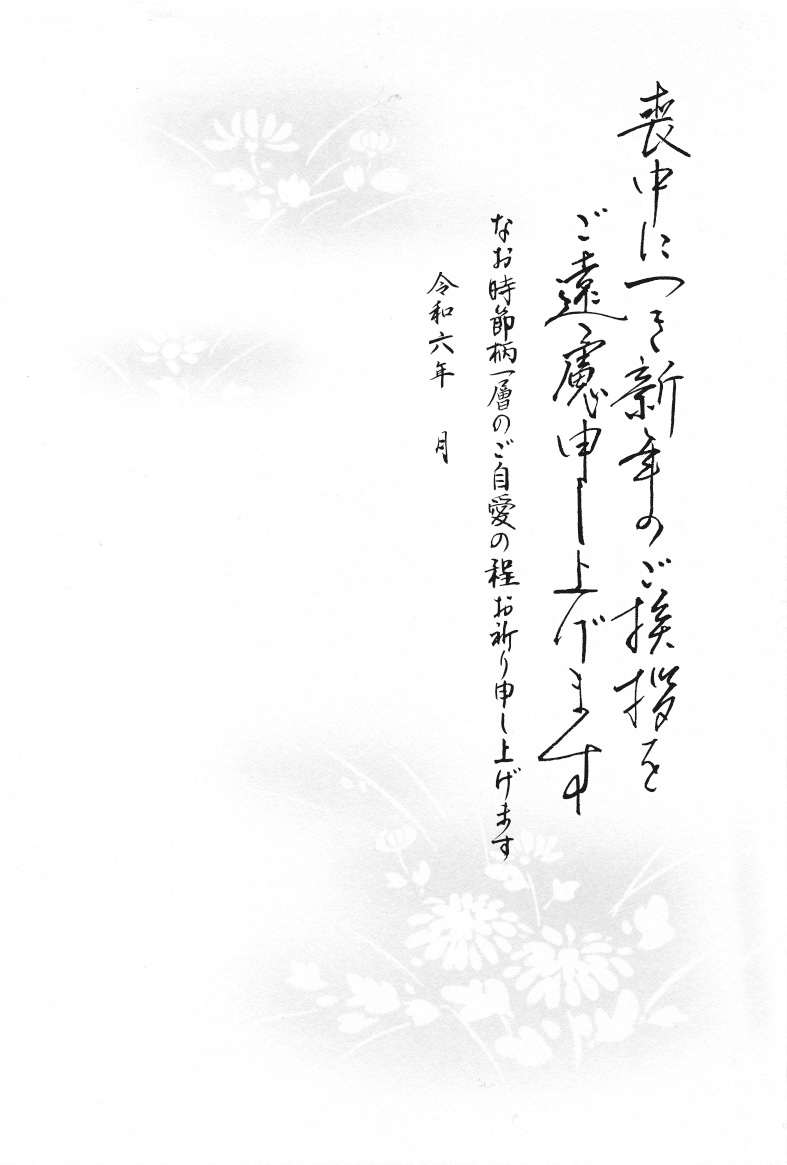 喪中につき新年のご挨拶を
ご遠慮申し上げます
なお時節柄一層のご自愛の程お祈り申し上げます
令和六年　月